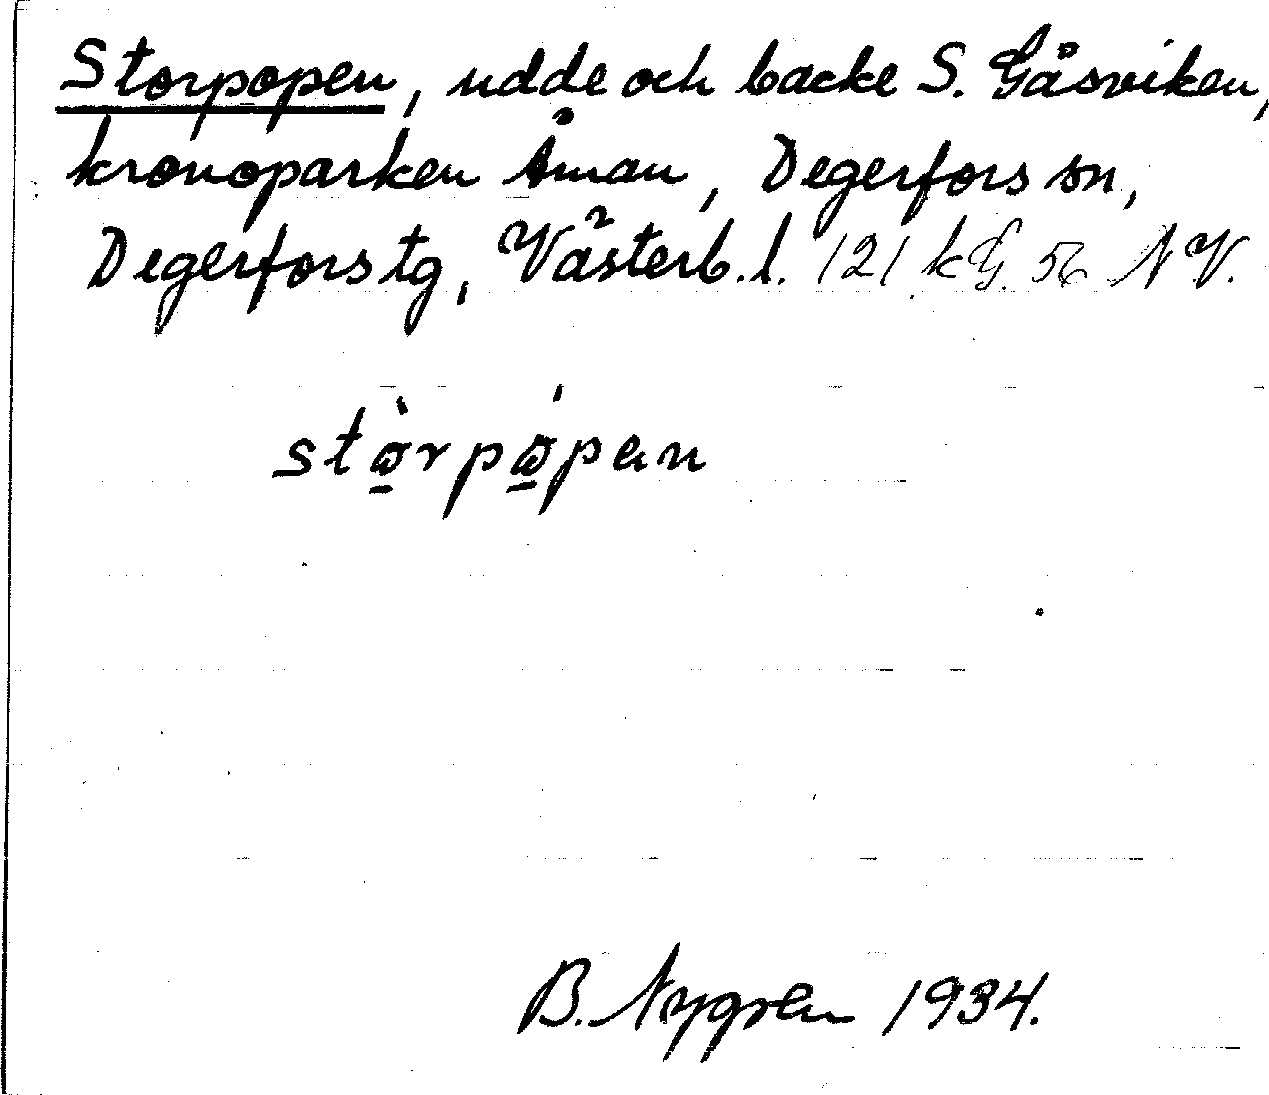 Storpopen, udde och backe S. Gåsviken,
kronoparken Åman, Degerfors sn,
Degerfors tg, Västerb. l. 121 kG. 56 NV.
stòrpópen
B. Nygren 1934.